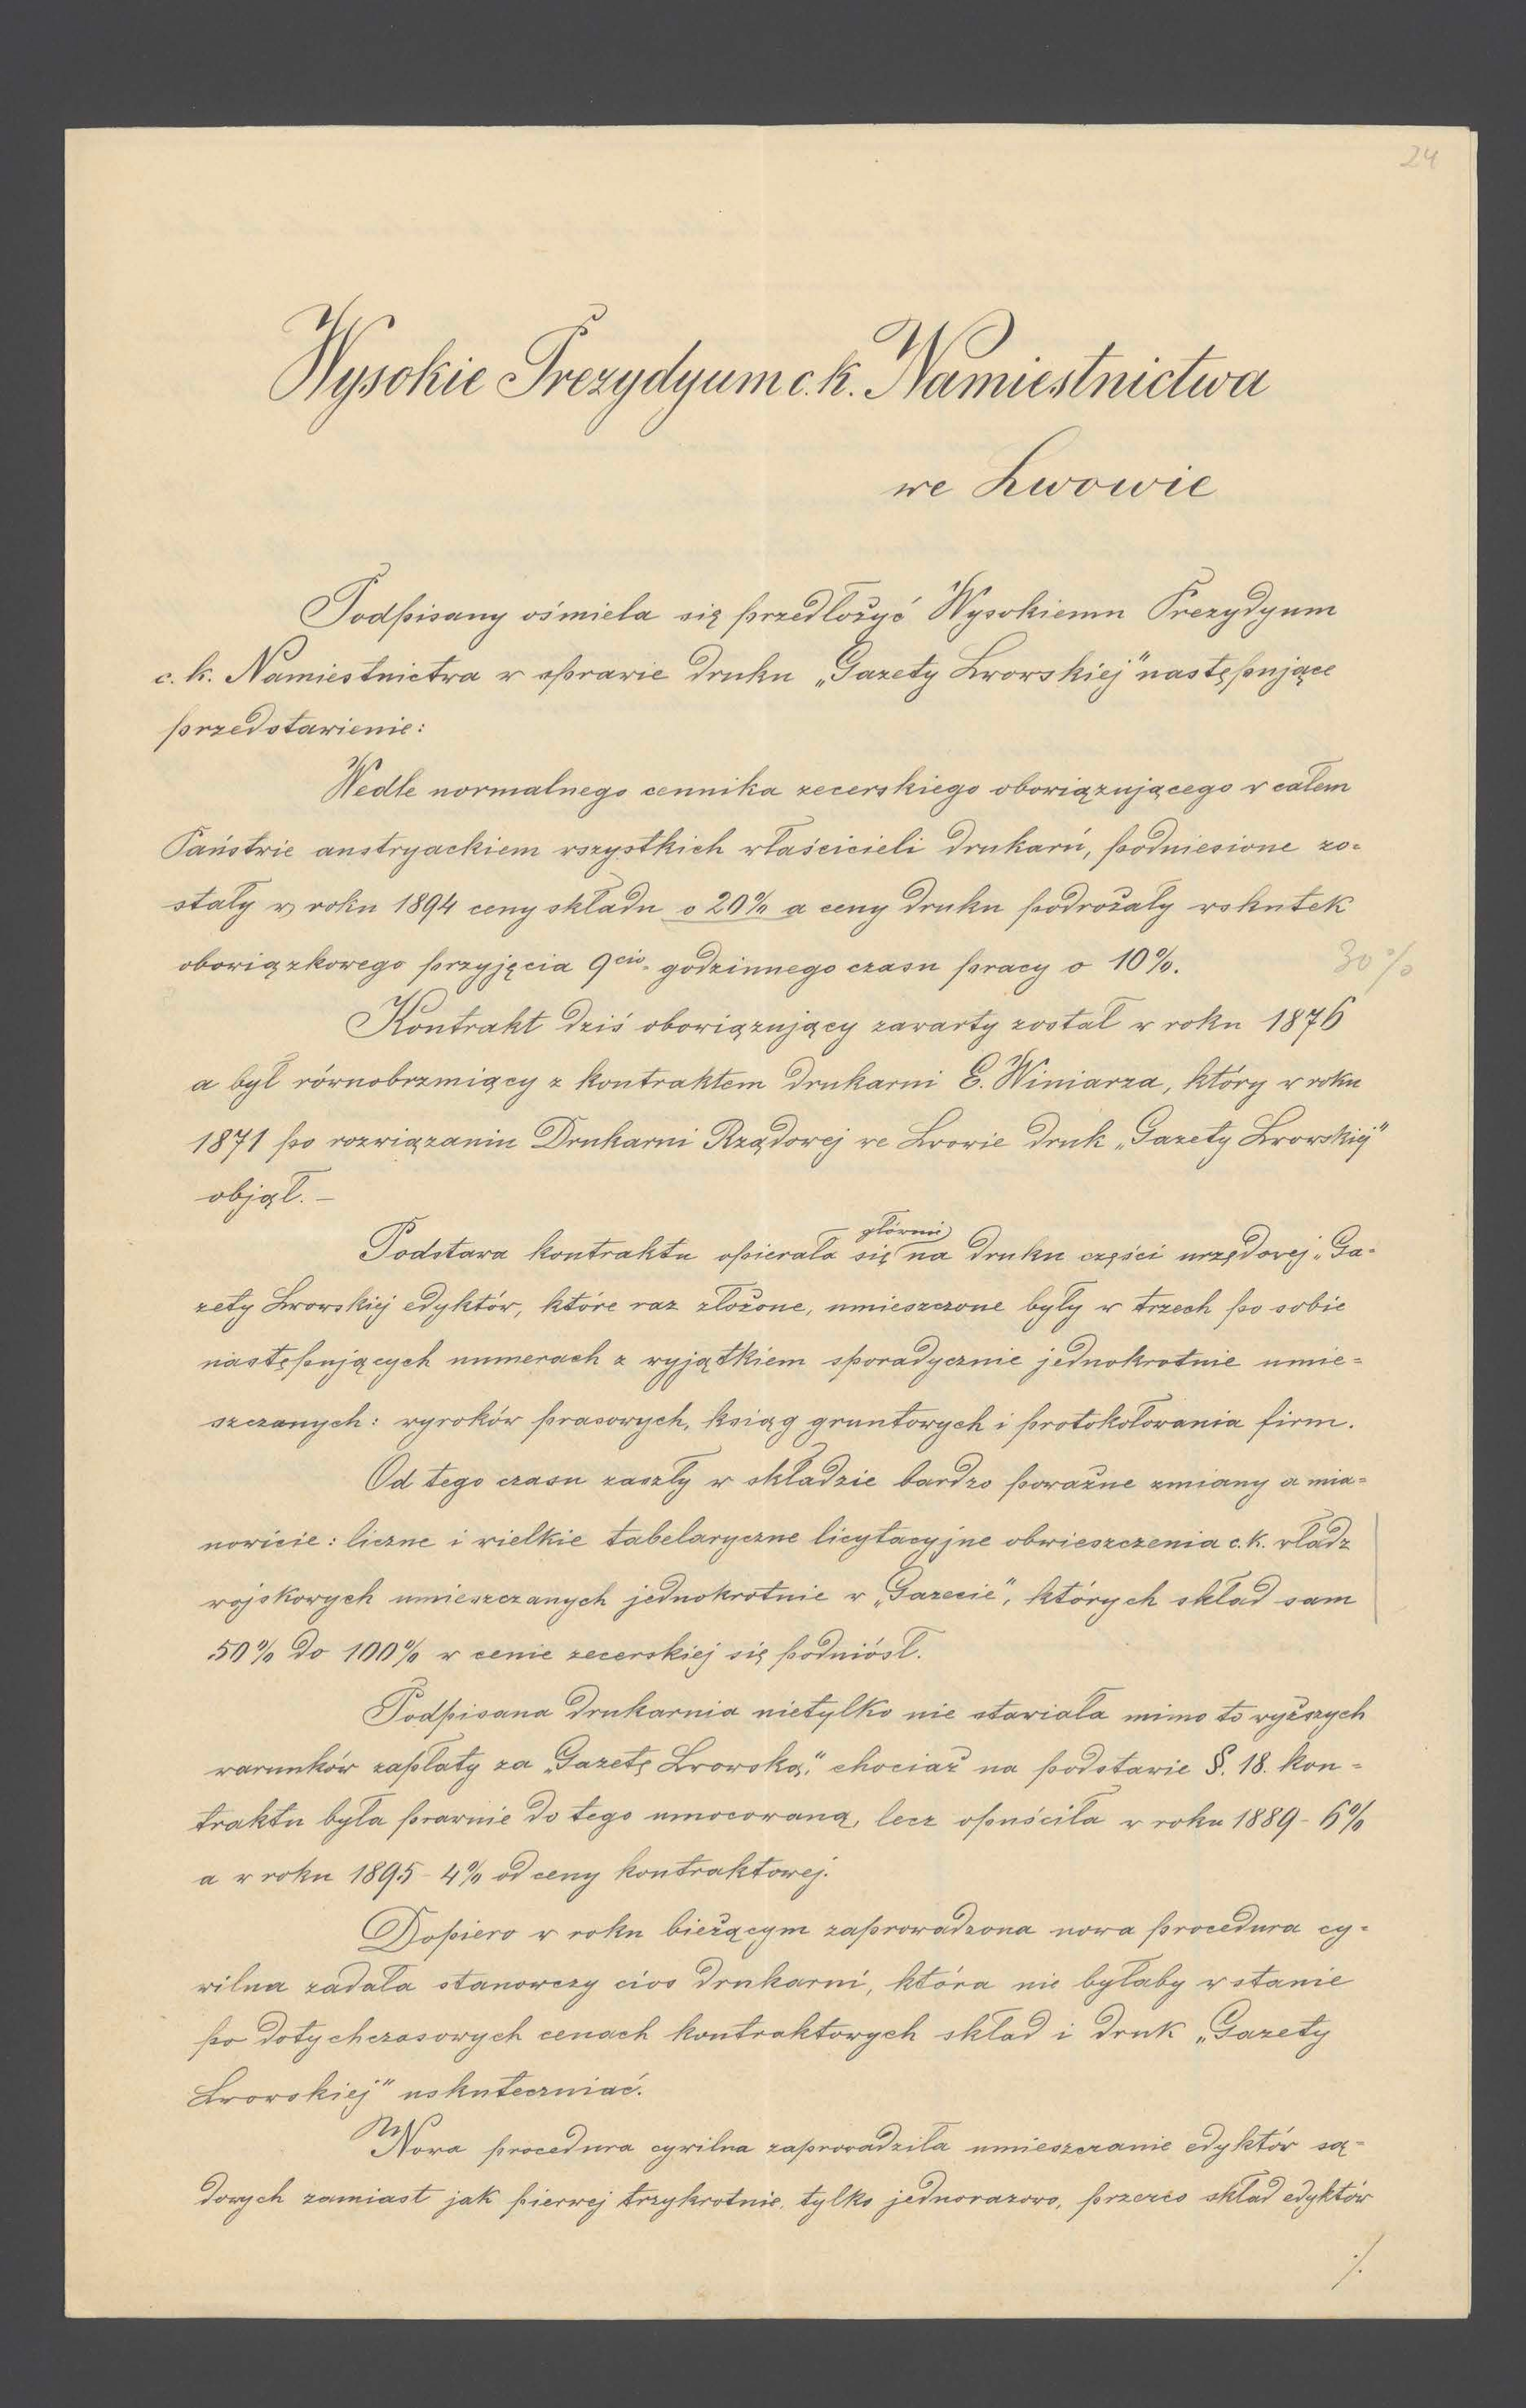 24
Wysokie Prezydyum c. k. Namiestnictwa
we Lwowie
Podpisany ośmiela się przedłożyć Wysokiemu Prezydyum
c. k. Namiestnictwa w sprawie druku „Gazety Lwowskiej" następujące
przedstawienie:
Wedle normalnego cennika zecerskiego obowiązującego w całem
Państwie austryackiem wszystkich właścicieli drukarń, podniesione zo-
stały w roku 1894 ceny składu o 20% a ceny druku podrożały wskutek
obowiązkowego przyjęcia 9cio godzinnego czasu pracy o 10%.
30%
Kontrakt dziś obowiązujący zawarty został w roku 1876
a był równobrzmiący z kontraktem drukarni E. Winiarza, który w roku
1871 po rozwiązaniu Drukarni Rządowej we Lwowie druk „Gazety Lwowskiej"
objął. –
głównie
Podstawa kontraktu opierała się na druku części urzędowej „Ga-
zety Lwowskiej edyktów, które raz złożone, umieszczone były w trzech po sobie
następujących numerach z wyjątkiem sporadycznie jednokrotnie umie-
szczanych: wyroków prasowych, ksiąg gruntowych i protokołowania firm.
Od tego czasu zaszły w składzie bardzo poważne zmiany a mia-
nowicie: liczne i wielkie tabelaryczne licytacyjne obwieszczenia c. k. władz
wojskowych umieszczanych jednokrotnie w „Gazecie", których skład sam
50% do 100% w cenie zecerskiej się podniósł.
Podpisana drukarnia nietylko nie stawiała mimo to wyższych
warunków zapłaty za „Gazetę Lwowską," chociaż na podstawie §. 18. kon-
traktu była prawnie do tego umocowaną, lecz opuściła w roku 1889 - 6%
a w roku 1895 - 4% od ceny kontraktowej.
Dopiero w roku bieżącym zaprowadzona nowa procedura cy-
wilna zadała stanowczy cios drukarni, która nie byłaby w stanie
po dotychczasowych cenach kontraktowych skład i druk „Gazety
Lwowskiej" uskuteczniać.
Nowa procedura cywilna zaprowadziła umieszczanie edyktów są-
dowych zamiast jak pierwej trzykrotnie, tylko jednorazowo, przezco skład edyktów
./.